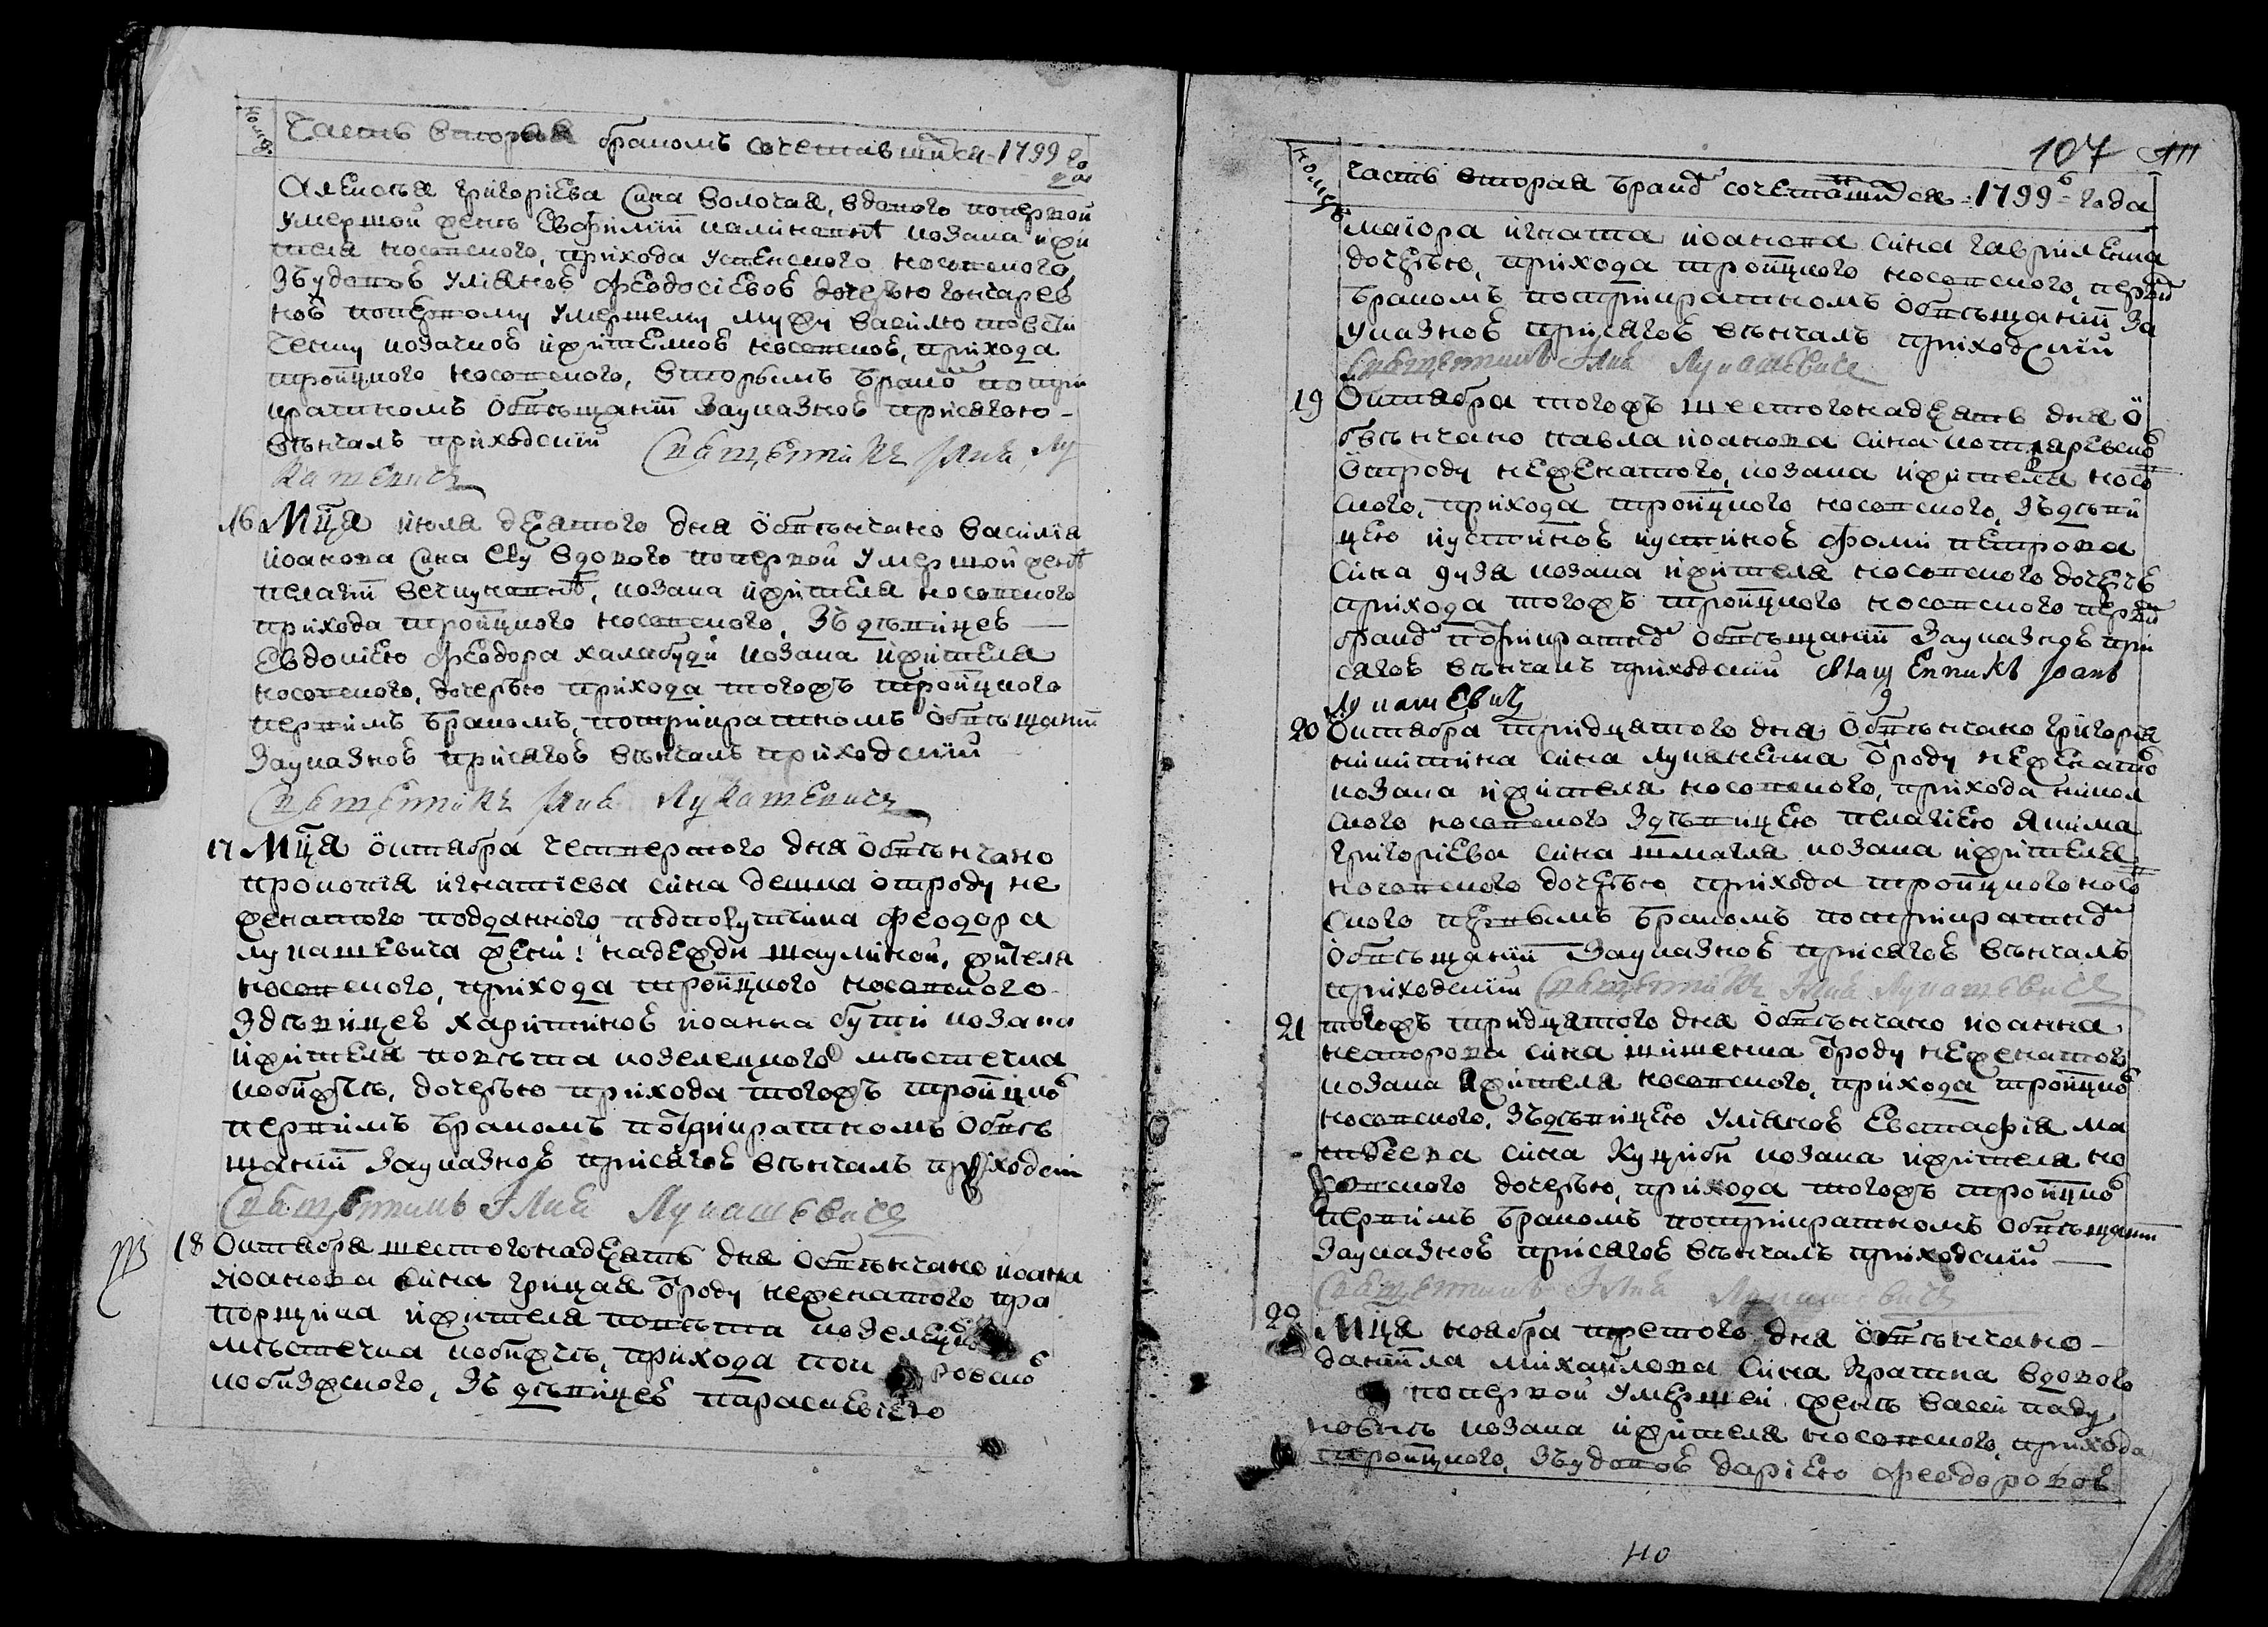 номер
Часть вторая бракомъ сочетавшихся 1799 го
да
Алексѣя григоріева сина волочая, вдового по первой
умершой женѣ Евфиміи козака и жи
теля носовского, прихода успенского носовского,
Зъ удовою Уліяною Феодосіевою дочерью гончарев
ною по первому умершему мужу василю товсти
козачкою и жителкою носовскою, прихода
тройцкого носовского, вторымъ бракомъ по три
кратномъ обвѣщаніи за указною присягою
вѣнчалъ приходскій Священникъ Іоанъ Лу
кашевичъ
16 Мця июля десятого дня обвѣнчано василія
иоанова сина вдового по первой умершой женѣ
пелагіи козака и жителя носовского
прихода тройцкого носовского, Зъ дѣвицею
Евдокіею феодора халабуди козака и жителя
носовского, дочерью прихода тогожъ тройцкого
первимъ бракомъ, по трикратномъ обвѣщаніи
За указною присягою вѣнчалъ приходскій
Священникъ Іоанъ Лукашевичъ
17 Мця октября четвертого дня обвѣнчано
прокопія игнатіева сина дешка отроду не
женатого подданного подполкутчика феодора
лукашевича жени надежди жителя
носовского, прихода тройцкого носовского
Зъ дѣвицею харитиною иоанна бутки козака
и жителя повѣта козелецкого мѣстечка
кобижчѣ, дочерью прихода тогожъ тройцко
первимъ бракомъ по трикратномъ обвѣ
щаніи За указною присягою вѣнчалъ приходскій
Священникъ Іоанъ Лукашевичъ
18 Октября шестогонадцять дня обвѣнчано иоана
иоанова сина грицая отроду неженатого пра
порщика и жителя повѣта козелецко
мѣстечка кобижчѣ, прихода покровско
кобизжского, Зъ дѣвицею параскевіею
107
номеръ
часть вторая бракомъ сочетавшихся 1799 года
маіора игната иоанова сина гавриленка
дочерью, прихода тройцкого носовского, первимъ
бракомъ по трикратномъ обвѣщаніи за
указною присягою вѣнчалъ приходскій
Священникъ Іоанъ Лукашевичъ
19 Октября тогожъ шестогонадцять дня о
бвѣнчано павла иоанова сина
отроду неженатого, козака и жителя носов
ского, прихода тройцкого носовского, Зъ дѣви
цею иустиною иустиною фоми петрова
сина козака и жителя носовского дочерю
прихода тогожъ тройцкого носовского первим
бракомъ по трикратном обвѣщаніи За указною при
сягою вѣнчалъ приходскій Священникъ Іоанъ
Лукашевичъ
20 Октября тридцятого дня обвѣнчано григорія
никитина сина лукяненка отроду неженатого
козака и жителя носовского, прихода никол
ского носовского Зъ дѣвицею пелагіею якима
григоріева сина шмагля козака и жителя
носовского дочерью прихода тройцкого носов
ского первымъ бракомъ по трикратном
обвѣщаніи За указною присягою вѣнчалъ
приходскій Священникъ Іоанъ Лукашевичъ
21 тогожъ тридцятого дня обвѣнчано иоанна
несторова сина отроду неженатого
козака и жителя носовского, прихода тройцко
носовского, Зъ дѣвицею Уліяною Евстафія ма
твѣева сина Куцибы козака и жителя но
совского дочерью, прихода тогожъ тройцко
первимъ бракомъ по трикратномъ обвѣщаніи
За указною присягою вѣнчалъ приходскій
Священникъ Іоанъ Лукашевичъ
22 Мця ноября третого дня обвѣнчано
даніила михайлова сина вдового
по первой умершей женѣ васси паду
ковнѣ козака и жителя носовского, прихода
тройцкого, Зъ удовою даріею феодоровою
110